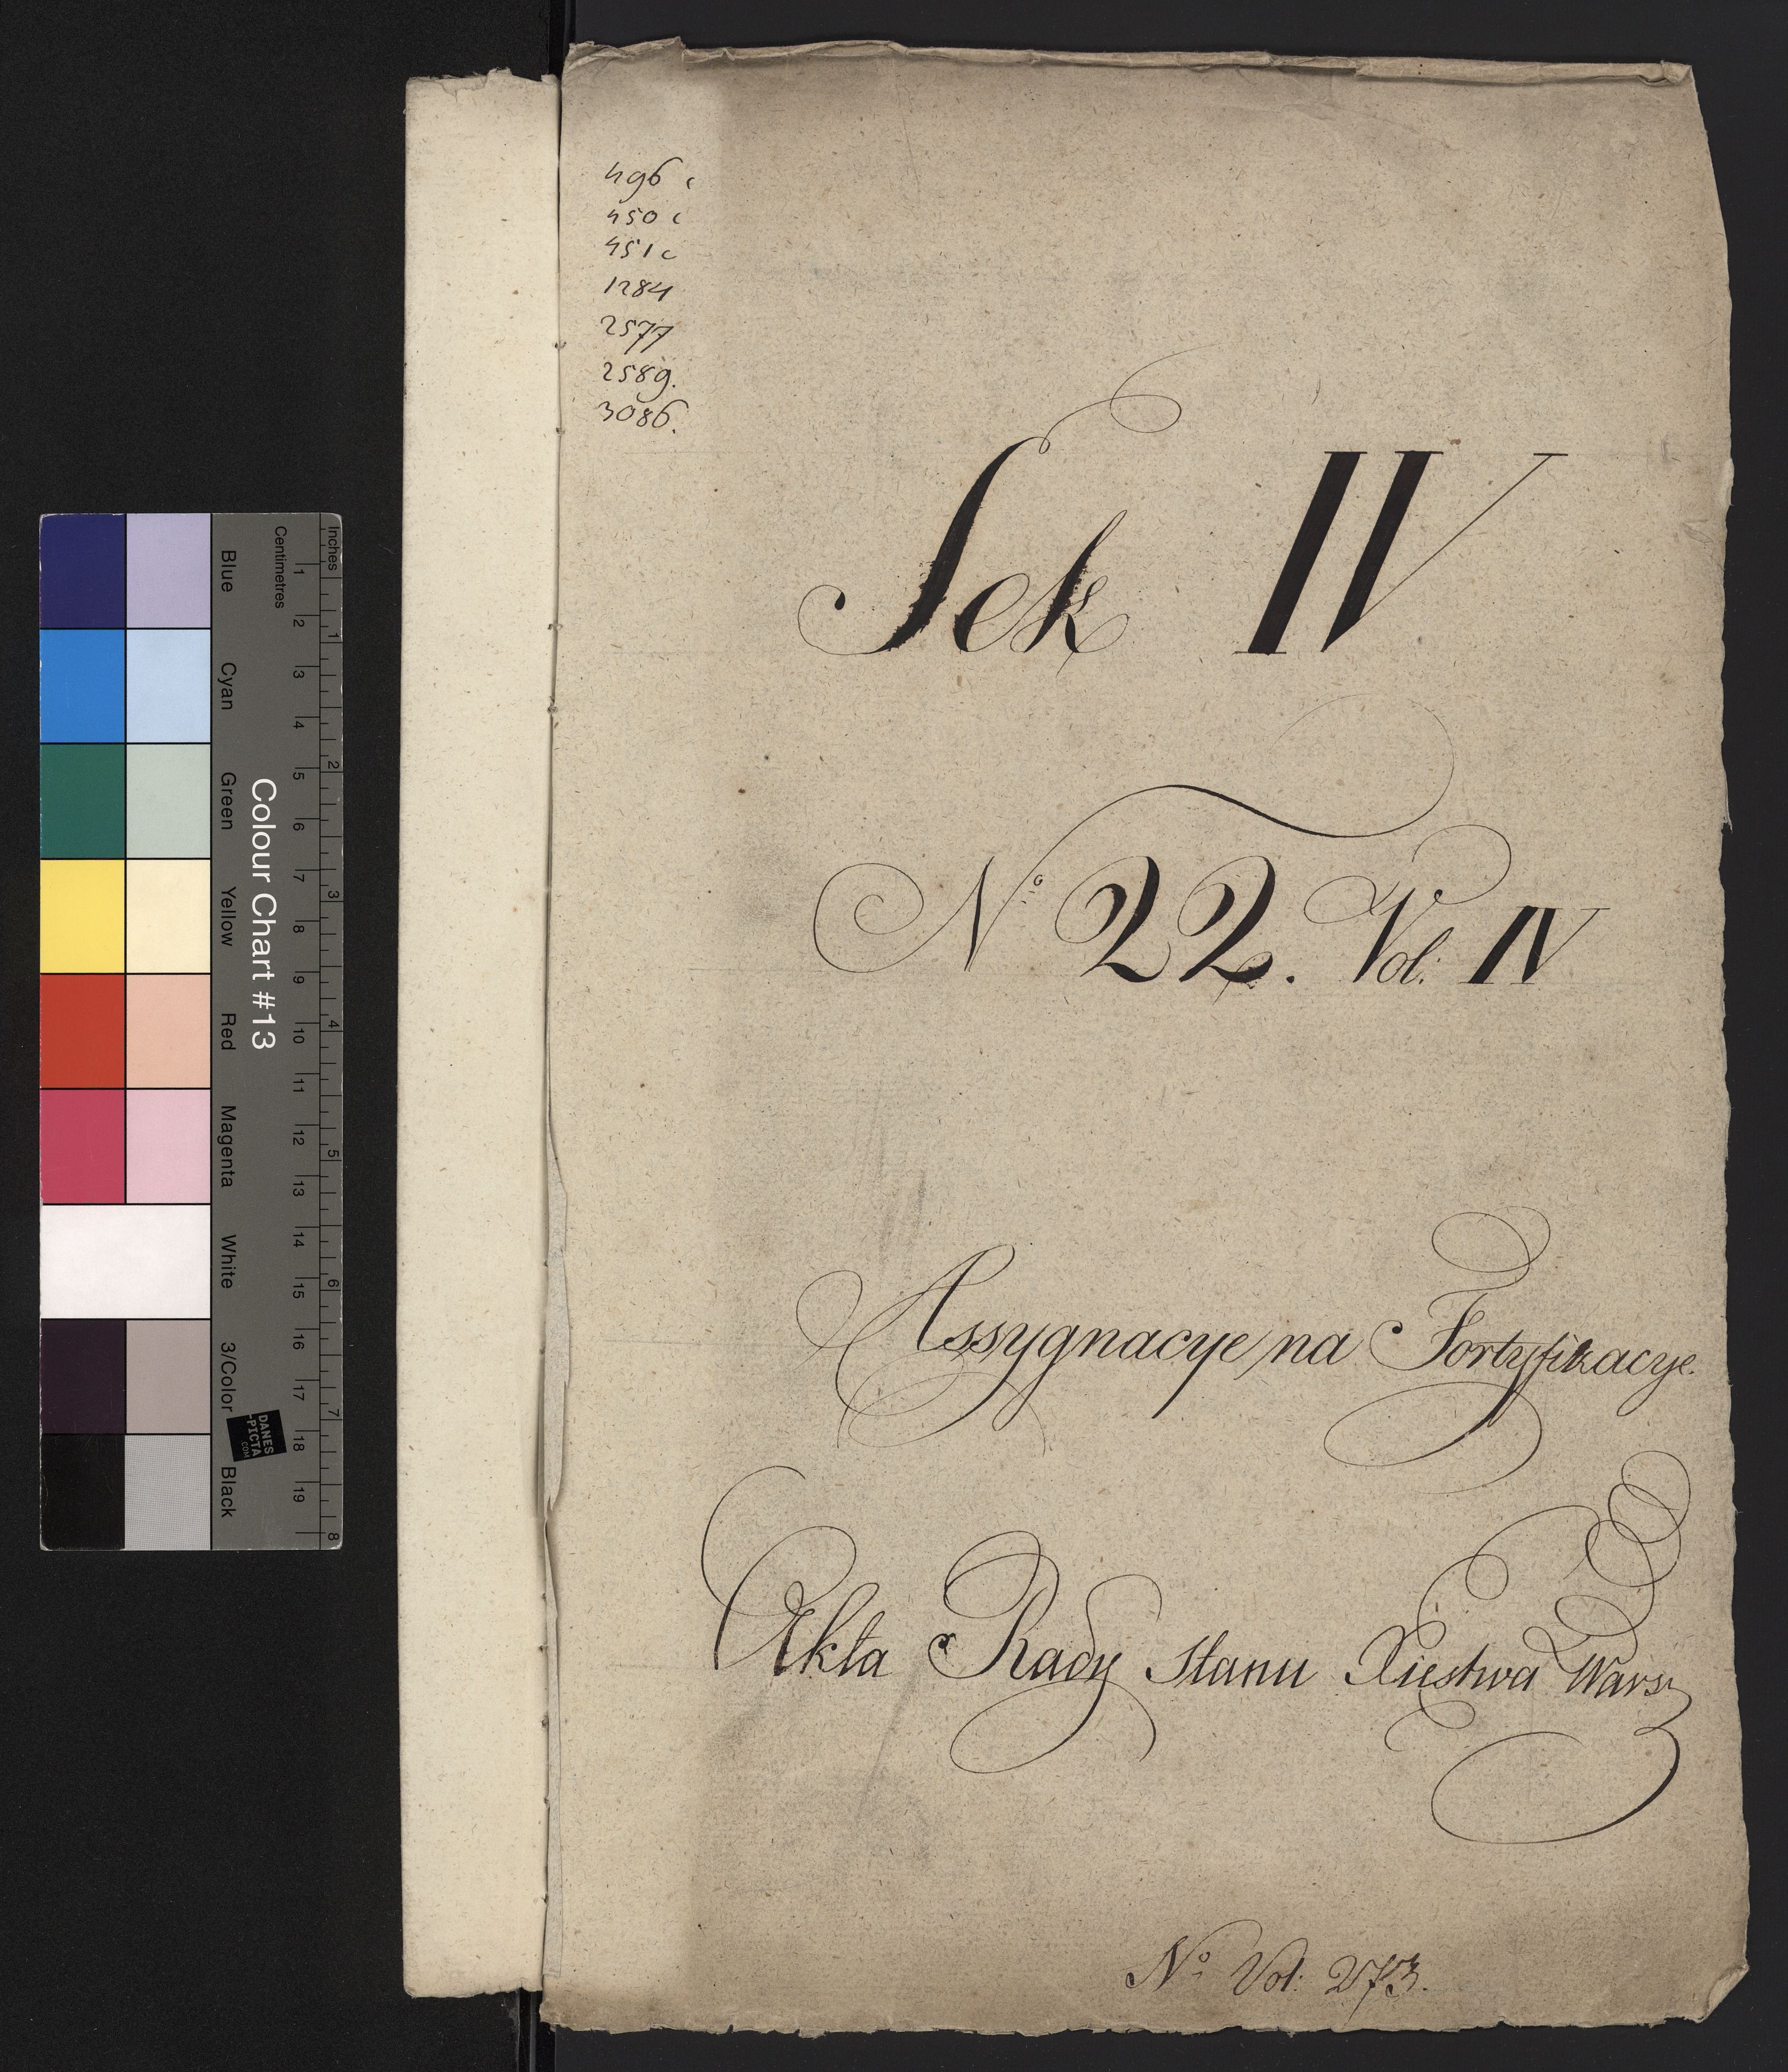 496 c
450 c
451 c
1284
2577
2589.
3086.
Sek IV
No 22. Vol: IV
Assygnacye na Fortyfikacye.
Akta Rady Stanu Xiestwa Warsz
No Vol: 273.
Inches
Centimetres
1 2 3 4 5 6 7 8 9 10 11 12 13 14 15 16 17 18 19
1 2 3 4 5 6 7 8
Colour Chart #13
Blue
Cyan
Green
Yellow
Red
Magenta
White
3/Color
Black
DANES
-PICTA
.COM